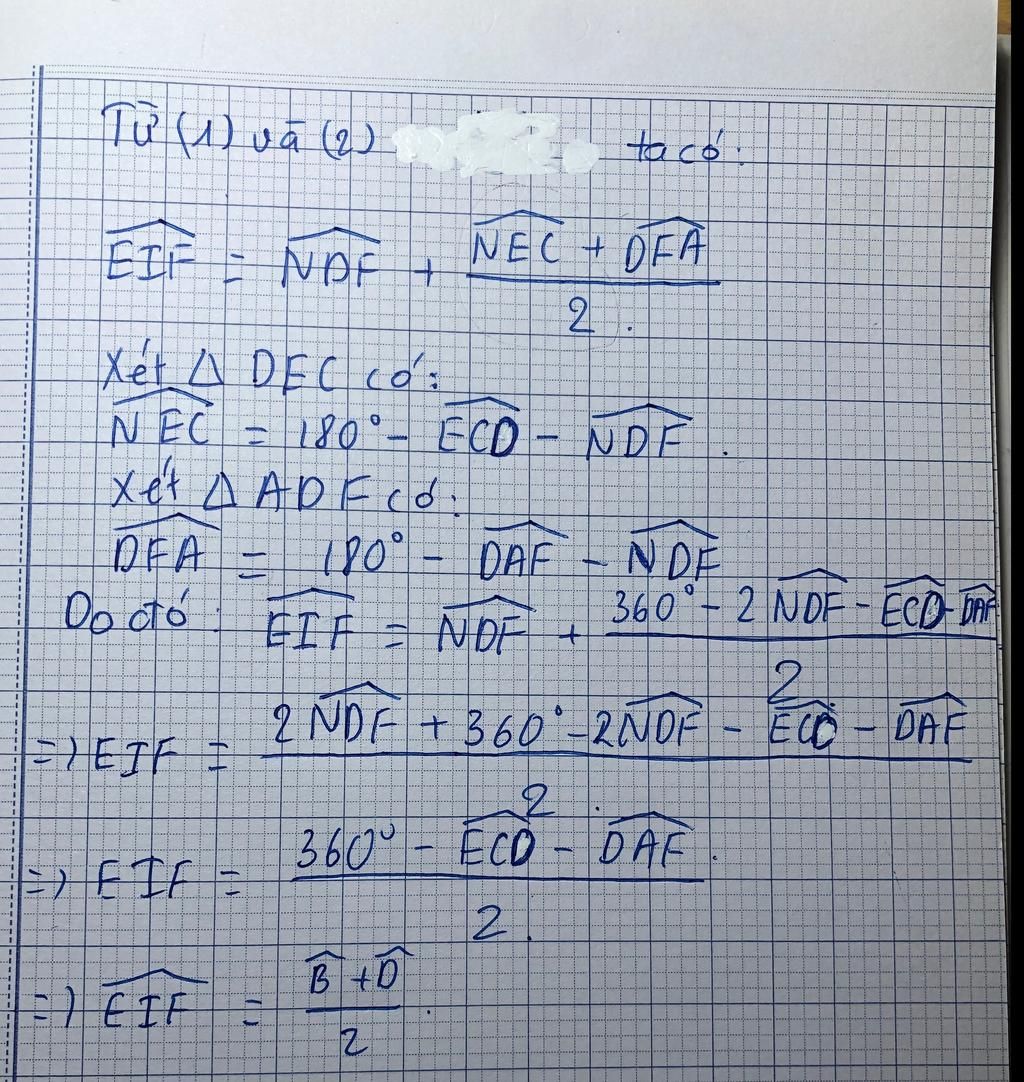 Từ (1) và (2) ta có:
$\widehat{EIF} = \widehat{NDF} + \frac{\widehat{NEC} + \widehat{DFA}}{2}$.
Xét Δ DEC có:
$\widehat{NEC} = 180° - \widehat{ECD} - \widehat{NDF}$.
Xét Δ ADF có:
$\widehat{DFA} = 180° - \widehat{DAF} - \widehat{NDF}$
Do đó: $\widehat{EIF} = \widehat{NDF} + \frac{360° - 2\widehat{NDF} - \widehat{ECD} - \widehat{DAF}}{2}$
=> $EIF = \frac{2\widehat{NDF} + 360° - 2\widehat{NDF} - \widehat{ECD} - \widehat{DAF}}{2}$.
=> $EIF = \frac{360° - \widehat{ECD} - \widehat{DAF}}{2}$.
=> $\widehat{EIF} = \frac{\widehat{B} + \widehat{D}}{2}$.